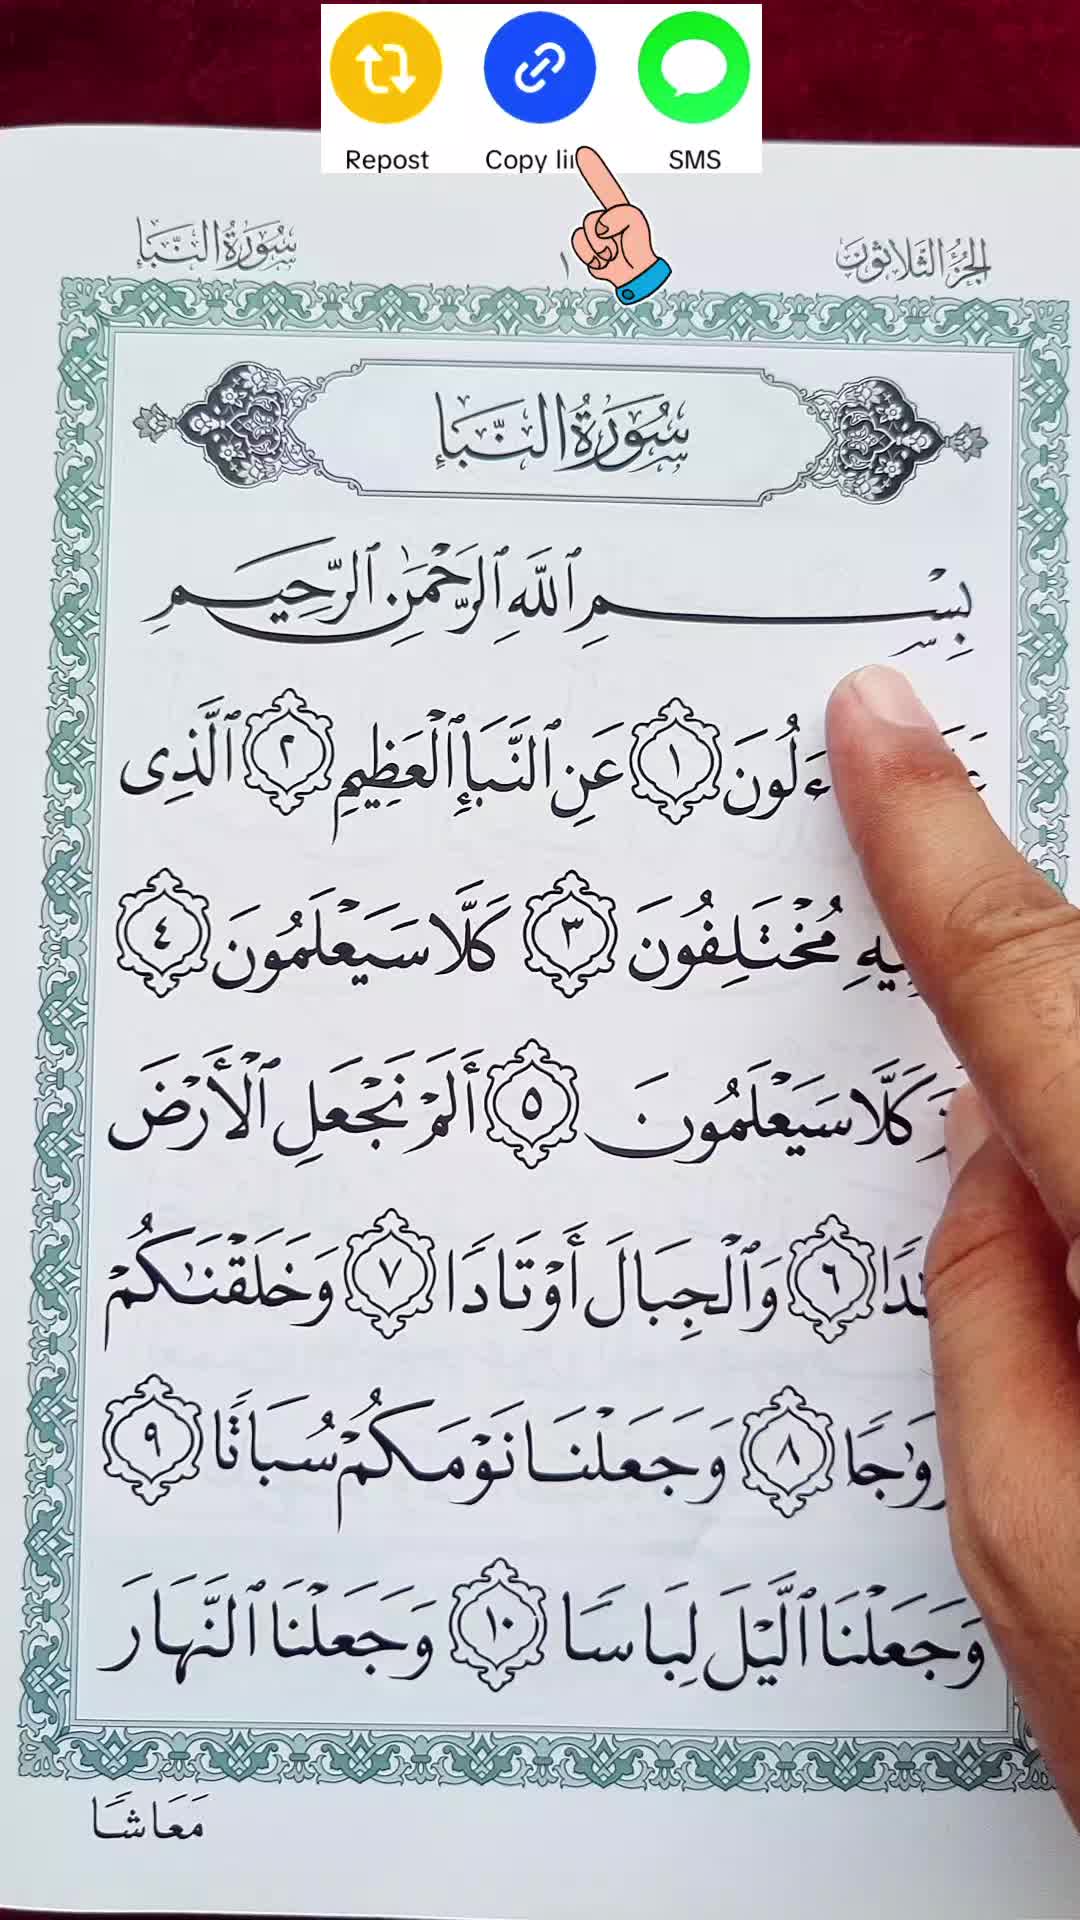 Repost Copy SMS
الجزء الثلاثون ١ سُورَةُ النَّبَإِ
سُورَةُ النَّبَإِ
بِسْمِ ٱللَّهِ ٱلرَّحْمَٰنِ ٱلرَّحِيمِ
ءَلُونَ ١ عَنِ ٱلنَّبَإِ ٱلْعَظِيمِ ٢ ٱلَّذِى
مُخْتَلِفُونَ ٣ كَلَّا سَيَعْلَمُونَ ٤
كَلَّا سَيَعْلَمُونَ ٥ أَلَمْ نَجْعَلِ ٱلْأَرْضَ
٦ وَٱلْجِبَالَ أَوْتَادًا ٧ وَخَلَقْنَٰكُمْ
٨ وَجَعَلْنَا نَوْمَكُمْ سُبَاتًا ٩
وَجَعَلْنَا ٱلَّيْلَ لِبَاسًا ١٠ وَجَعَلْنَا ٱلنَّهَارَ
مَعَاشًا